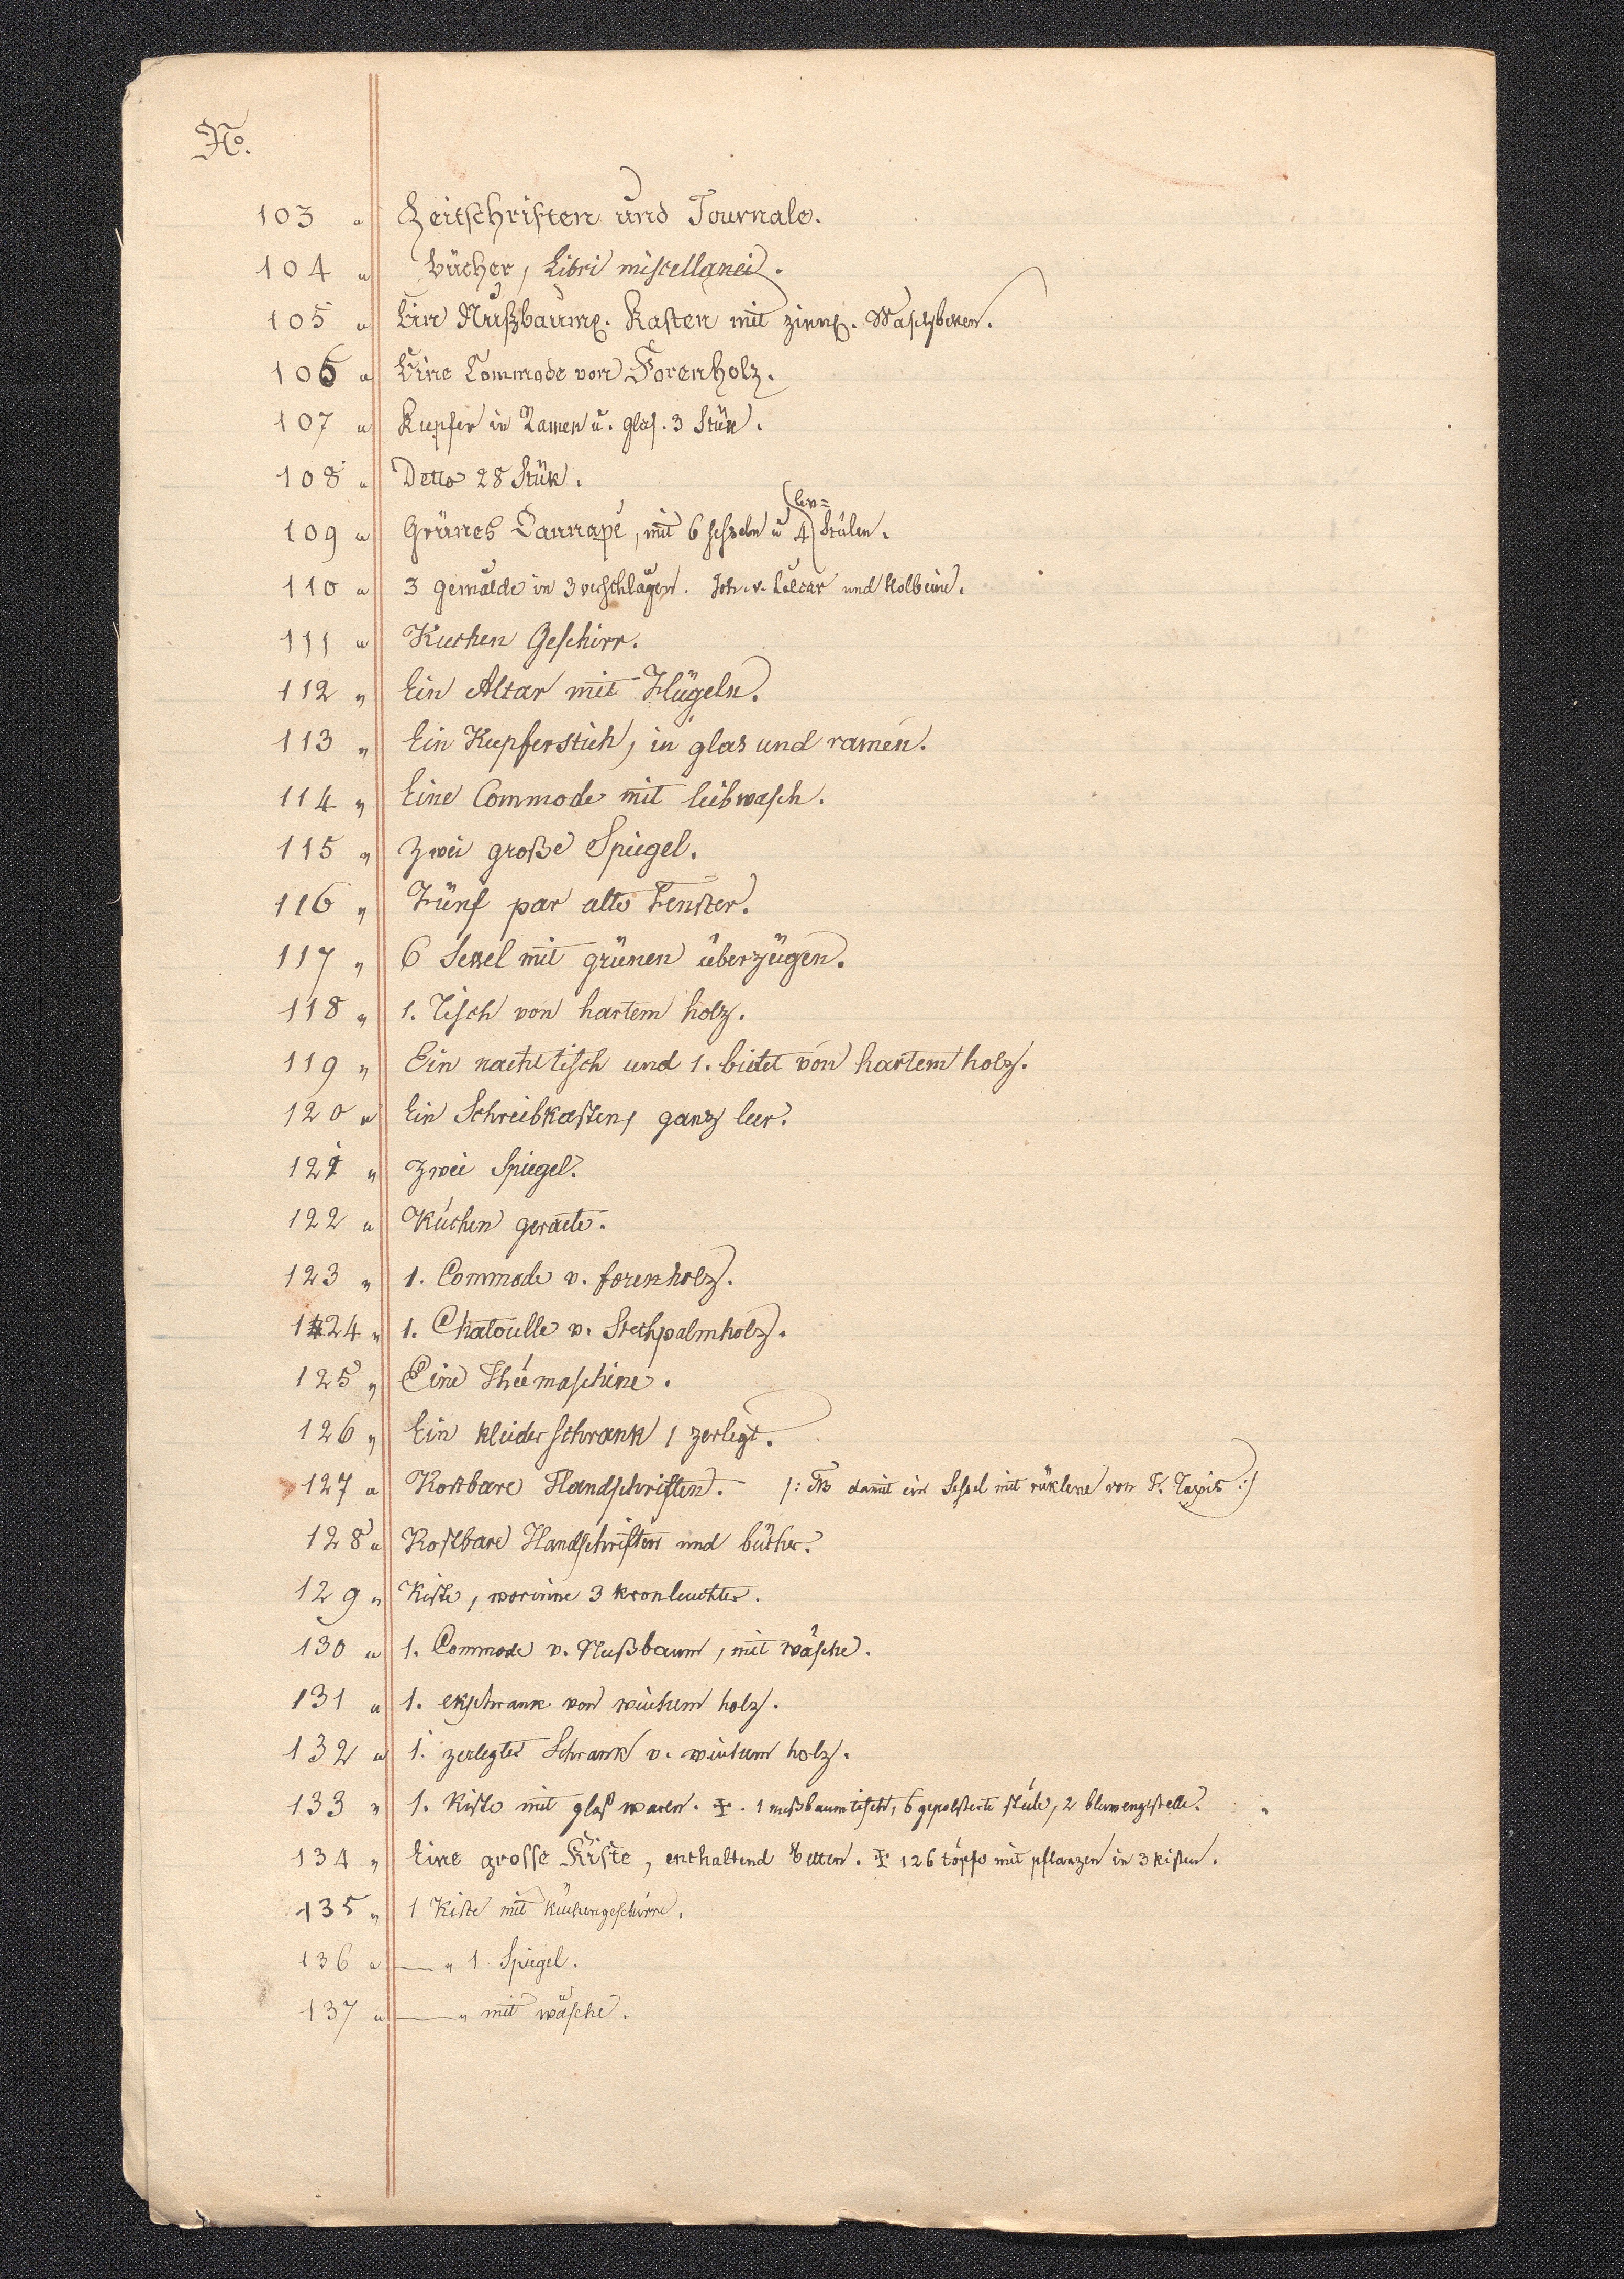 No.
103 " Zeitschriften und Journale.
104 " Bücher, Libri miscellanei.
105 " Ein Nußbaum. Kasten mit zinn. Waschbeken.
106 " Eine Commode von Forenholz.
107 " Kupfer in Ramen u. glas. 3 Stük.
108 " Detto 28 Stük.
109 " Grünes Cannapé, mit 6 seszeln u 4 (len= Stülen.
110 " 3 gemälde in 3 verschlägen. Joh. v. Calcar und Holbeine.
111 " Kuchen Geschirr.
112 " Ein Altar mit Flügeln.
113 " Ein Kupferstich, in glas und ramen.
114 " Eine Commode mit leibwasch.
115 " Zwei große Spiegel.
116 " Fünf par alte Fenster.
117 " 6 Sessel mit grünen überzügen.
118 " 1. Tisch von hartem holz.
119 " Ein nachttisch und 1. bidet von hartem holz.
120 " Ein Schreibkasten, ganz leer.
121 " Zwei Spiegel.
122 " Küchen geraete.
123 " 1. Commode v. forenholz.
124 " 1. Chatoulle v. Stechpalmholz.
125 " Eine Théemaschine.
126 " Ein kleiderschrank, zerlegt.
127 " Kostbare Handschriften. /: NB damit ein Sessel mit rüklene von F. Taxis :/
128 " Kostbare Handschriften und bücher.
129 " Kiste, worinne 3 kronleuchter.
130 " 1. Commode v. Nußbaum, mit wäsche.
131 " 1. ekschrank von weichem holz.
132 " 1. zerlegter Schrank v. weichem holz.
133 " 1. Kiste mit glas waren. ‡. 1 nußbaumtisch, 6 gepolsterte stüle, 2 blumengestelle.
134 " Eine grosse Kiste, enthaltend Betten. ‡ 126 töpfe mit pflanzen in 3 kisten.
135 " 1 Kiste mit küchengeschirre.
136 " — " 1 Spiegel.
137 " — " mit wäsche.